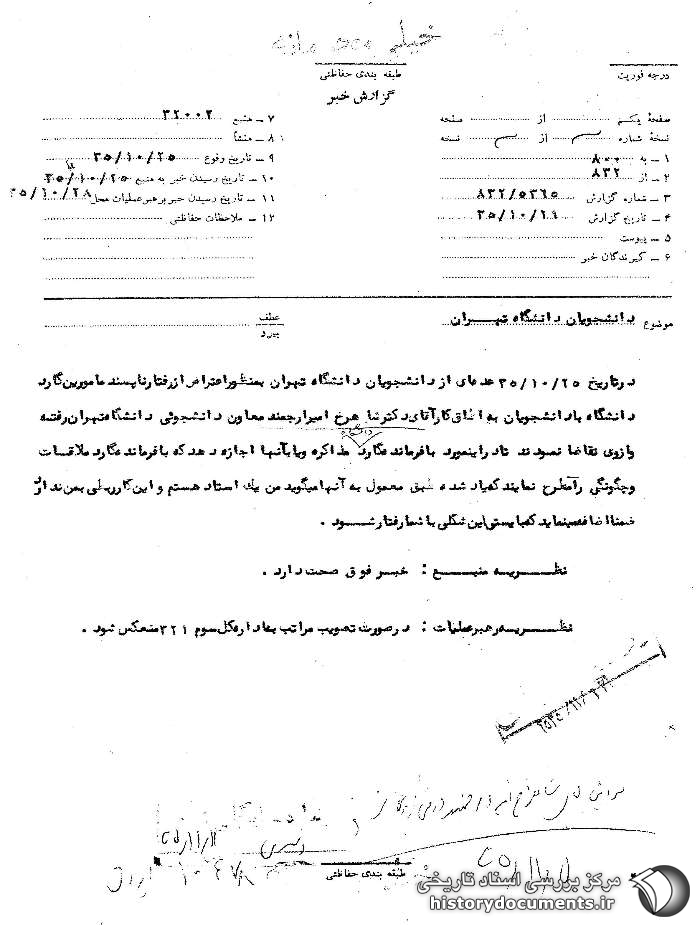 خیلی محرمانه
طبقه بندی حفاظتی
درجه فوریت
گزارش خبر
صفحهٔ یکم از صفحه
نسخهٔ شماره از نسخه
۱ ــ به ۸۰۰
۲ ــ از ۸۳۲
۳ ــ شماره گزارش ۸۳۲/۵۳۶۵
۴ ــ تاریخ گزارش ۳۵/۱۰/۲۹
۵ ــ پیوست
۶ ــ گیرندگان خبر
۷ ــ منبع ۳۲۰۰۲
۸ ــ منشأ
۹ ــ تاریخ وقوع ۳۵/۱۰/۲۵
۱۰ ــ تاریخ رسیدن خبر به منبع ۳۵/۱۰/۲۵
۱۱ ــ تاریخ رسیدن خبر برهبر عملیات محل ۳۵/۱۰/۲۸
۱۲ ــ ملاحظات حفاظتی
موضوع دانشجویان دانشگاه تهران
عطف
پیرو
درتاریخ ۳۵/۱۰/۲۵ عده‌ای از دانشجویان دانشگاه تهران بمنظور اعتراض از رفتار ناپسند مامورین گارد
دانشگاه با دانشجویان به اطاق کار آقای دکتر شاهرخ امیرارجمند معاون دانشجوئی دانشگاه تهران رفته
و از وی تقاضا نمودند تا در اینمورد با فرمانده گارد دانشگاه مذاکره و یا بآنها اجازه دهد که با فرمانده گارد ملاقات
و چگونگی را مطرح نمایند که یاد شده طبق معمول به آنها میگوید من یك استاد هستم و این کار ربطی بمن ندارد
ضمنا اضافه مینماید که بایستی این شکلی با شما رفتار شود .
نظریه منبع : خبر فوق صحت دارد .
نظریه رهبر عملیات : در صورت تصویب مراتب به اداره کل سوم ۳۲۱ منعکس شود .
طبقه بندی حفاظتی
مرکز بررسی اسناد تاریخی
historydocuments.ir